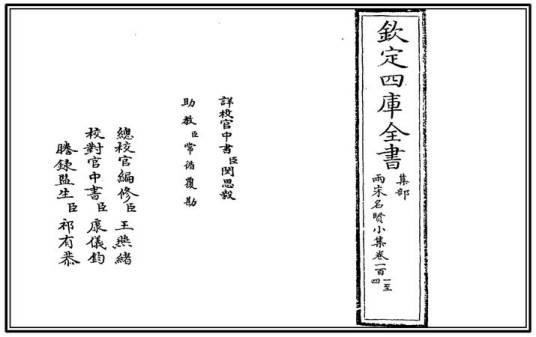 欽定四庫全書
集部
兩宋名賢小集卷一百一至四
詳校官中書臣閔思毅
助教臣常循覆勘
總校官編修臣王燕緒
校對官中書臣康儀鈞
謄錄監生臣祁有恭